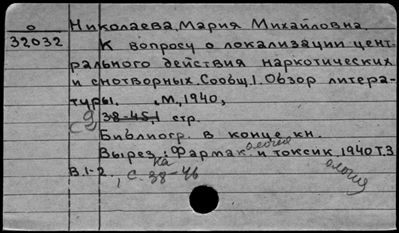 о Николаева, Мария Михайловна.
32032 К вопросу о локализации цент-
рального действия наркотических
и снотворных. Сообщ. 1. Обзор литера-
туры. М., 1940,
с 9 38-45,1 стр.
Библиогр. в конце кн.
Вырез. Фармак ология и токсик ология 1940 Т.3
В.1-2. , с. 38-46